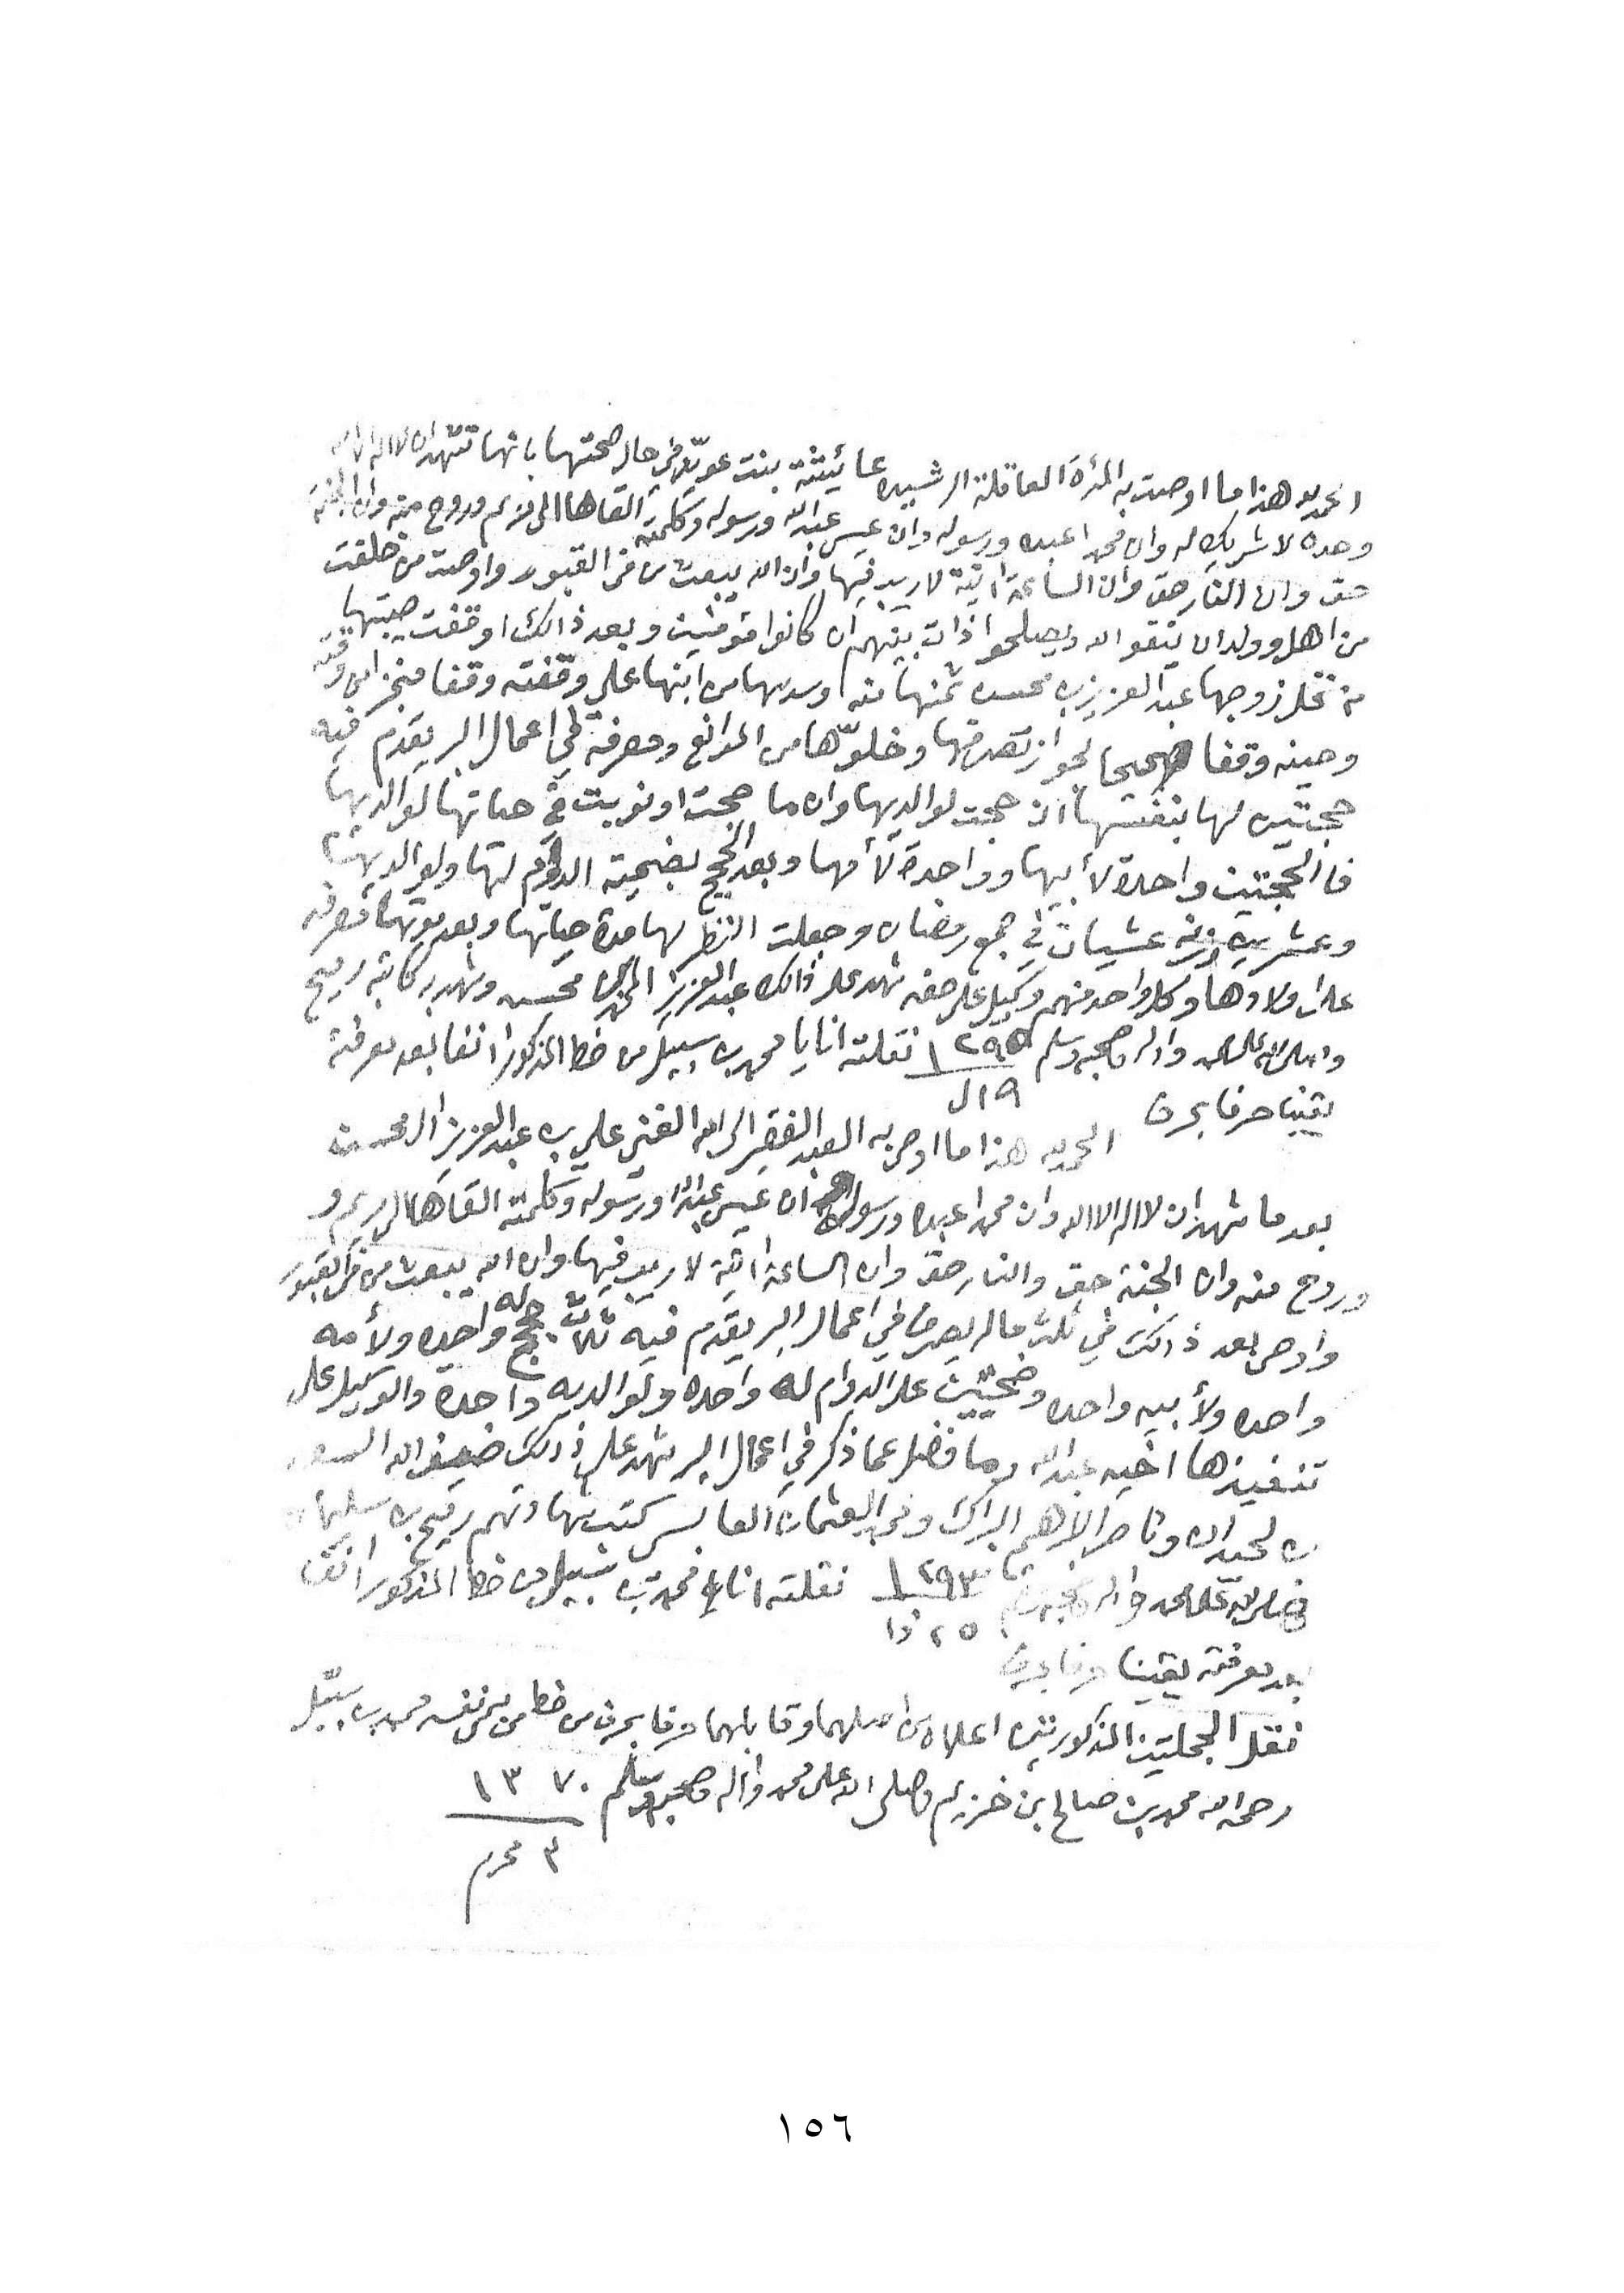 الحمد لله هذا ما اوصت به المرأة العاقلة الرشيده عائيشة بنت عويّد في حال صحتها بانها تشهد ان لا اله الا الله
وحده لا شريك له وان محمدا عبده ورسوله وان عيسى عبد الله ورسوله وكلمته القاها الى مريم وروح منه وان الجنة
حق وان النار حق وان الساعة اتية لا ريب فيها وان الله يبعث من في القبور واوصت من خلفت
من اهل وولد ان يتقوا الله ويصلحوا ذات بينهم ان كانوا مؤمنين وبعد ذالك اوقفت صيبتها
من نخل زوجها عبد العزيز بن محسن ثمنها منه وسدسها من ابنها علي وقفته وقفا منجزا من وقته
وحينه وقفا صحيحا لجواز تصرفها وخلوّها من الموانع ومصرفه في اعمال البر يقدم فيه
حجتين لها بنفسها ان حجت لوالديها وان ما حجت او نويت في حياتها لوالديها
فالحجتين واحدة لأبيها وواحدة لأمها وبعد الحجج بضحية الدوام لها ولوالديها
وعشرين وزنه عشيات في جمع رمضان وجعلت النظر لها مدة حياتها وبعد موتها مصرفه
على اولادها وكل واحد منهم وكيل على حقه شهد على ذالك عبد العزيز المحمد بن محسن وشهد به كاتبه رميح
وصلى الله على محمد واله وصحبه وسلم ١٢٩٥ نقلته انايا محمد بن سبيّل من خط المذكور انفا بعد معرفته
١٩ ل
يقينا حرفا بحرف
الحمد لله هذا ما اوصى به العبد الفقير الى الله الغني علي بن عبد العزيز ال محسن
بعد ما شهد ان لا اله الا الله وان محمدا عبده ورسوله وان عيسى عبد الله ورسوله وكلمته القاها الى مريم و
وروح منه وان الجنة حق والنار حق وان الساعة اتية لا ريب فيها وان الله يبعث من في القبور
واوصى بعد ذالك في ثلث ماله يصرف في اعمال البر يقدم فيه ثلاث حجج له واحده ولأمه
واحده ولأبيه واحده وضحيتين على الدوام له واحده ولوالديه واحدة والوكيل على
تنفيذها اخيه عبد الله وما فضل عما ذكر في اعمال البر شهد على ذالك ضيف الله
بن لحيدان وناصر الابراهيم البراك ومحمد العثمان العابسي كتب شهادتهم رميح بن سليمان
وصلى الله على محمد واله وصحبه وسلم ١٢٩٣ نقلته انايا محمد بن سبيل من خط المذكور انفا
٢٥ ذا
بعد معرفته يقينا حرفا بحرف
نقل السجلتين المذكورتين اعلاه من اصلهما وقابلهما حرفا بحرف من خط من نفسه محمد بن سبيّل
رحمه الله محمد بن صالح ابن خزيم وصلى الله على محمد واله وصحبه وسلم ١٣٧٠
٣ محرم
١٥٦